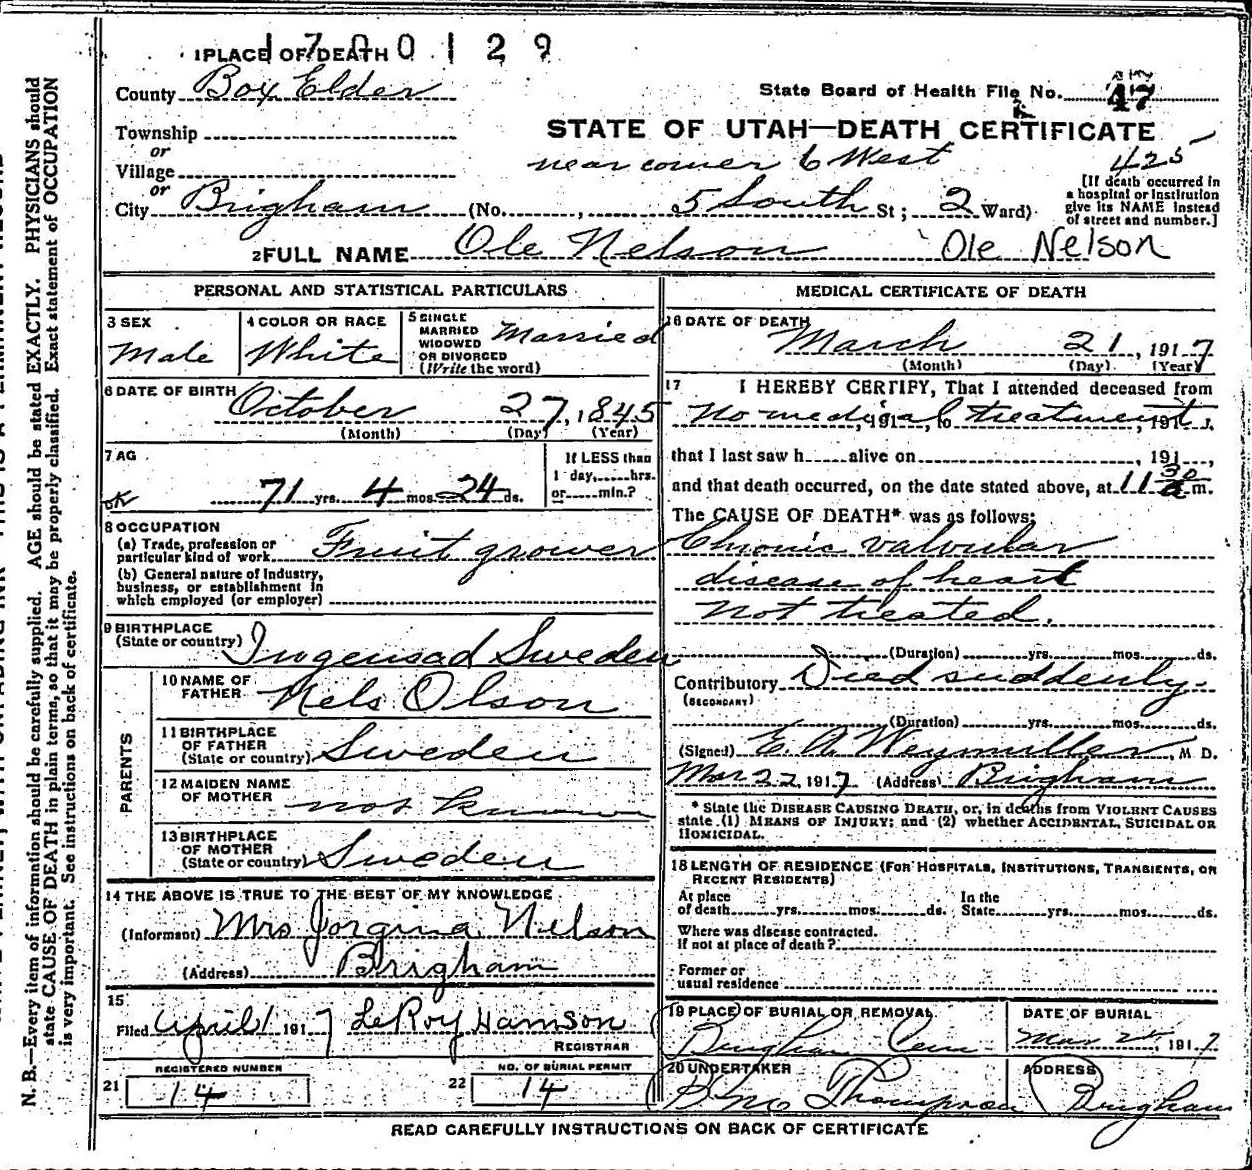 1 PLACE OF DEATH
1700129
County Box Elder
State Board of Health File No. 47
Township
or
STATE OF UTAH—DEATH CERTIFICATE
Village
near corner 6 West 425
or
City Brigham (No. , 5 South St; 2 Ward)
[If death occurred in a hospital or institution give its NAME instead of street and number.]
2 FULL NAME Ole Nelson Ole Nelson
PERSONAL AND STATISTICAL PARTICULARS
3 SEX Male
4 COLOR OR RACE White
5 SINGLE MARRIED WIDOWED OR DIVORCED (Write the word) Married
6 DATE OF BIRTH October 27, 1845
(Month) (Day) (Year)
7 AG
71 yrs. 4 mos. 24 ds.
If LESS than 1 day, hrs. or min.?
8 OCCUPATION
(a) Trade, profession or particular kind of work Fruit grower
(b) General nature of Industry, business, or establishment in which employed (or employer)
9 BIRTHPLACE (State or country) Sweden
PARENTS
10 NAME OF FATHER Nels Olson
11 BIRTHPLACE OF FATHER (State or country) Sweden
12 MAIDEN NAME OF MOTHER not known
13 BIRTHPLACE OF MOTHER (State or country) Sweden
14 THE ABOVE IS TRUE TO THE BEST OF MY KNOWLEDGE
(Informant) Mrs Jorgina Nelson
(Address) Brigham
15
Filed April 1 1917 LeRoy
REGISTRAR
REGISTERED NUMBER
21 14
NO. OF BURIAL PERMIT
22 14
MEDICAL CERTIFICATE OF DEATH
16 DATE OF DEATH
March 21, 1917
(Month) (Day) (Year)
17 I HEREBY CERTIFY, That I attended deceased from
No medical treatment, 191 , to , 191
that I last saw h alive on , 191 ,
and that death occurred, on the date stated above, at 11 30 a m.
The CAUSE OF DEATH* was as follows:
Chronic valvular
disease of heart
Not treated.
(Duration) yrs. mos. ds.
Contributory Died suddenly.
(SECONDARY)
(Duration) yrs. mos. ds.
(Signed) E. A. Weymuller, M D.
Mar 22, 1917 (Address) Brigham
* State the DISEASE CAUSING DEATH, or, in deaths from VIOLENT CAUSES
state (1) MEANS OF INJURY; and (2) whether ACCIDENTAL, SUICIDAL OR
HOMICIDAL.
18 LENGTH OF RESIDENCE (FOR HOSPITALS, INSTITUTIONS, TRANSIENTS, OR
RECENT RESIDENTS)
At place of death yrs. mos. ds. In the State yrs. mos. ds.
Where was disease contracted.
if not at place of death?
Former or
usual residence
19 PLACE OF BURIAL OR REMOVAL
Brigham Cem
DATE OF BURIAL
Mar 25, 1917
20 UNDERTAKER
Thompson
ADDRESS
Brigham
READ CAREFULLY INSTRUCTIONS ON BACK OF CERTIFICATE
N. B.—Every item of information should be carefully supplied. AGE should be stated EXACTLY. PHYSICIANS should
state CAUSE OF DEATH in plain terms, so that it may be properly classified. Exact statement of OCCUPATION
is very important. See instructions on back of certificate.